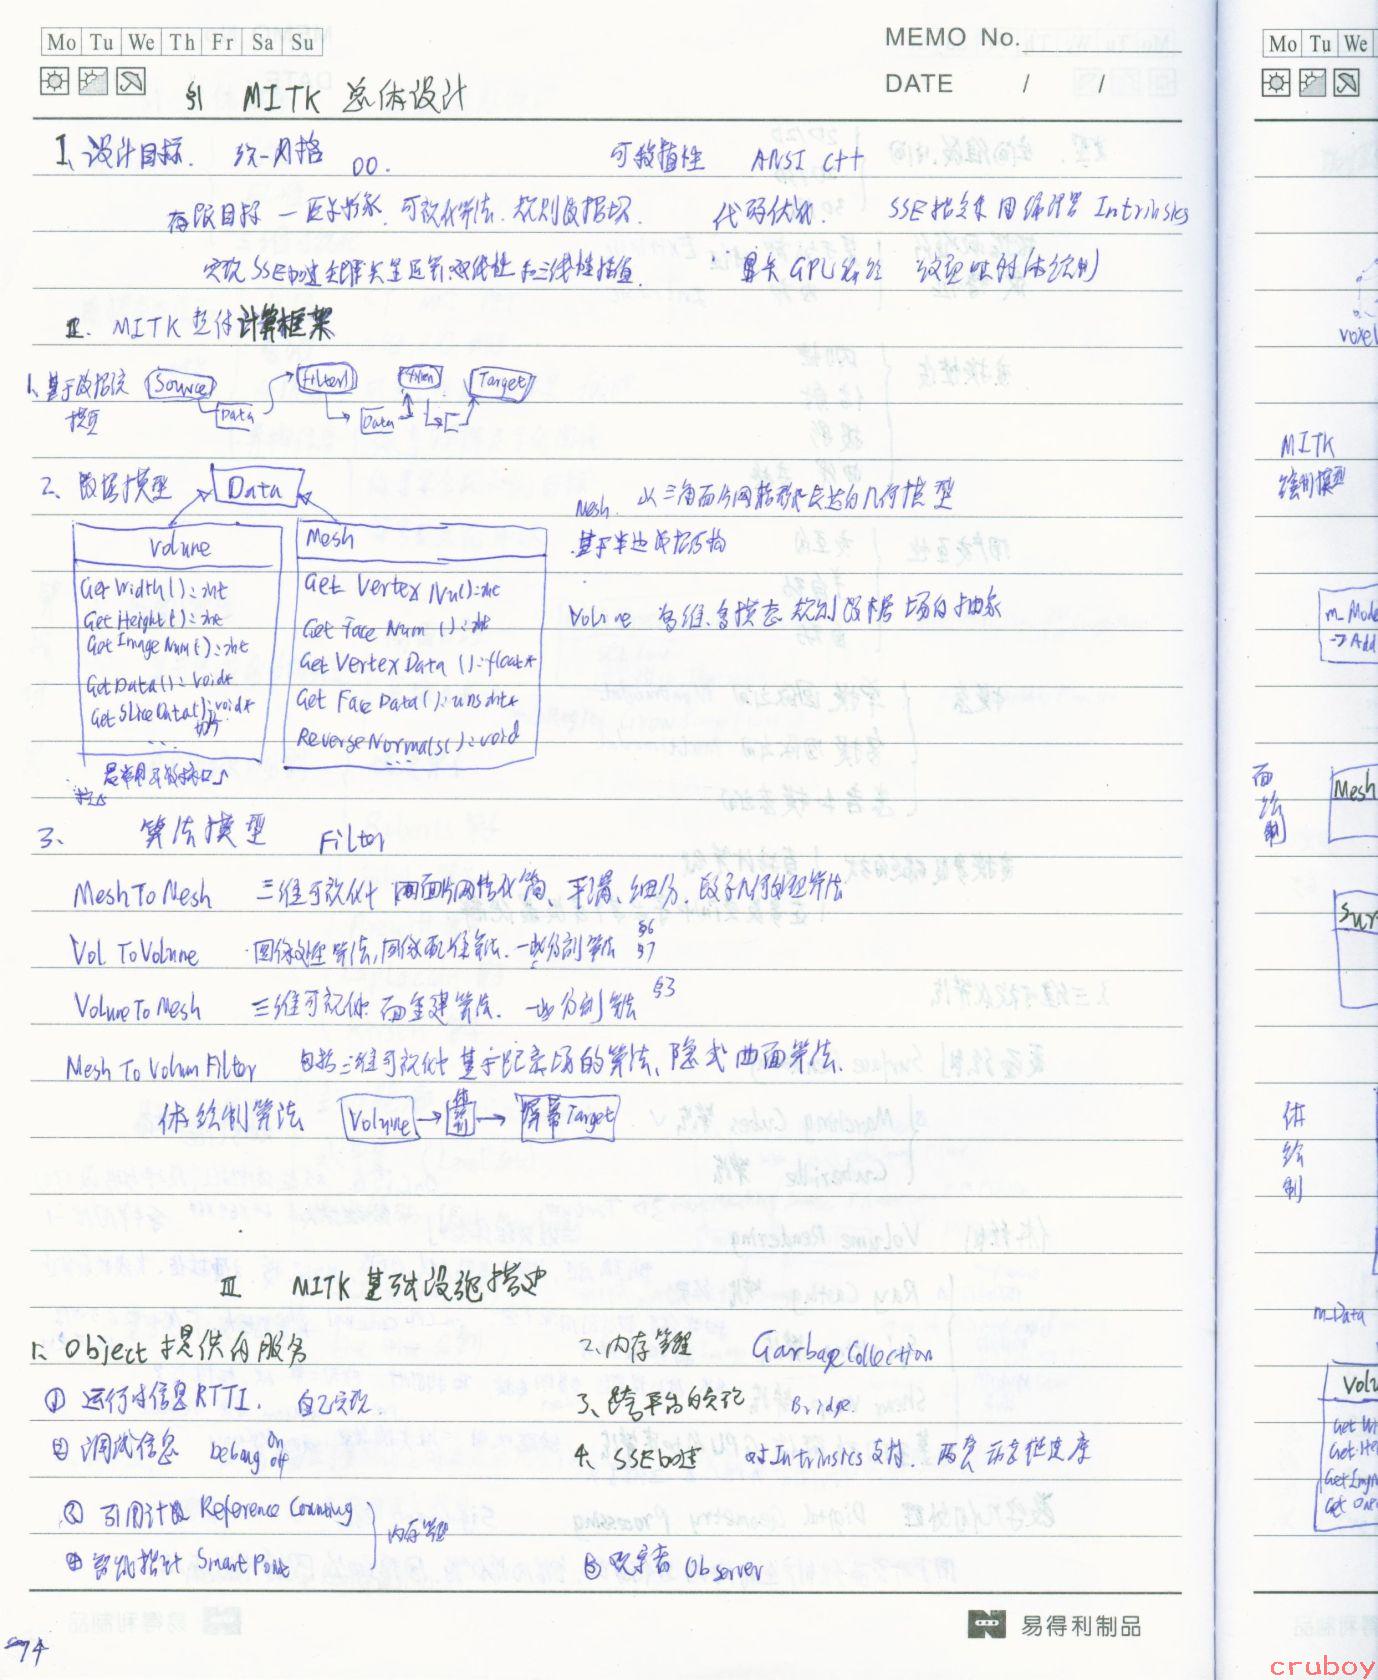 Mo Tu We Th Fr Sa Su
MEMO No.
DATE / /
§1 MITK 总体设计
I、设计目标. 统一风格 OO. 可移植性 ANSI C++
有限目标 — 医学影像、可视化算法、规则数据场. 代码优化. SSE指令集 用编译器 Intrinsics
实现SSE加速 矩阵矢量运算、双线性和三线性插值.
II. MITK 整体计算框架
1、基于数据流模型
Source Data Filter1 Data Filter Target
2、数据模型 Data
Volume
GetWidth():int
GetHeight():int
GetImageNum():int
GetData():void*
GetSliceData():void*
...
Mesh
Get Vertex Nu():int
Get Face Num():int
Get Vertex Data():float*
Get Face Data():unsint*
ReverseNormals():void
...
Mesh. 以三角面片网格形式表达的几何模型
基于半边数据结构
Volume 多维、多模态规则数据场的抽象
3、 算法模型 Filter
Mesh To Mesh 三维可视化中 网面片网格化简、平滑、细分、数字几何处理算法
Vol To Volume 图像处理算法,图像配准算法. 一些分割算法 §6 §7
Volume To Mesh 三维可视化 面重建算法. 一些分割算法 §3
Mesh To Volum Filter 包括三维可视化中 基于距离场的算法、隐式曲面算法.
体绘制算法 Volume → → 屏幕Target
III MITK 基础设施搭建
1、Object 提供的服务
① 运行时信息 RTTI. 自己实现
② 调试信息 Debug on off
③ 引用计数 Reference Counting
④ 智能指针 Smart Point
内存管理
2、内存管理 Garbage Collection
3、跨平台的实现 Bridge.
4、SSE加速 对Intrinsics支持.
⑤ 观察者 Observer
易得利制品
74
Mo Tu We
voxel
MITK
绘制模型
m_Mode
→Add
面绘制
Mesh
Sur
体绘制
m_Data
Volu
Get Wi
Get He
cruboy